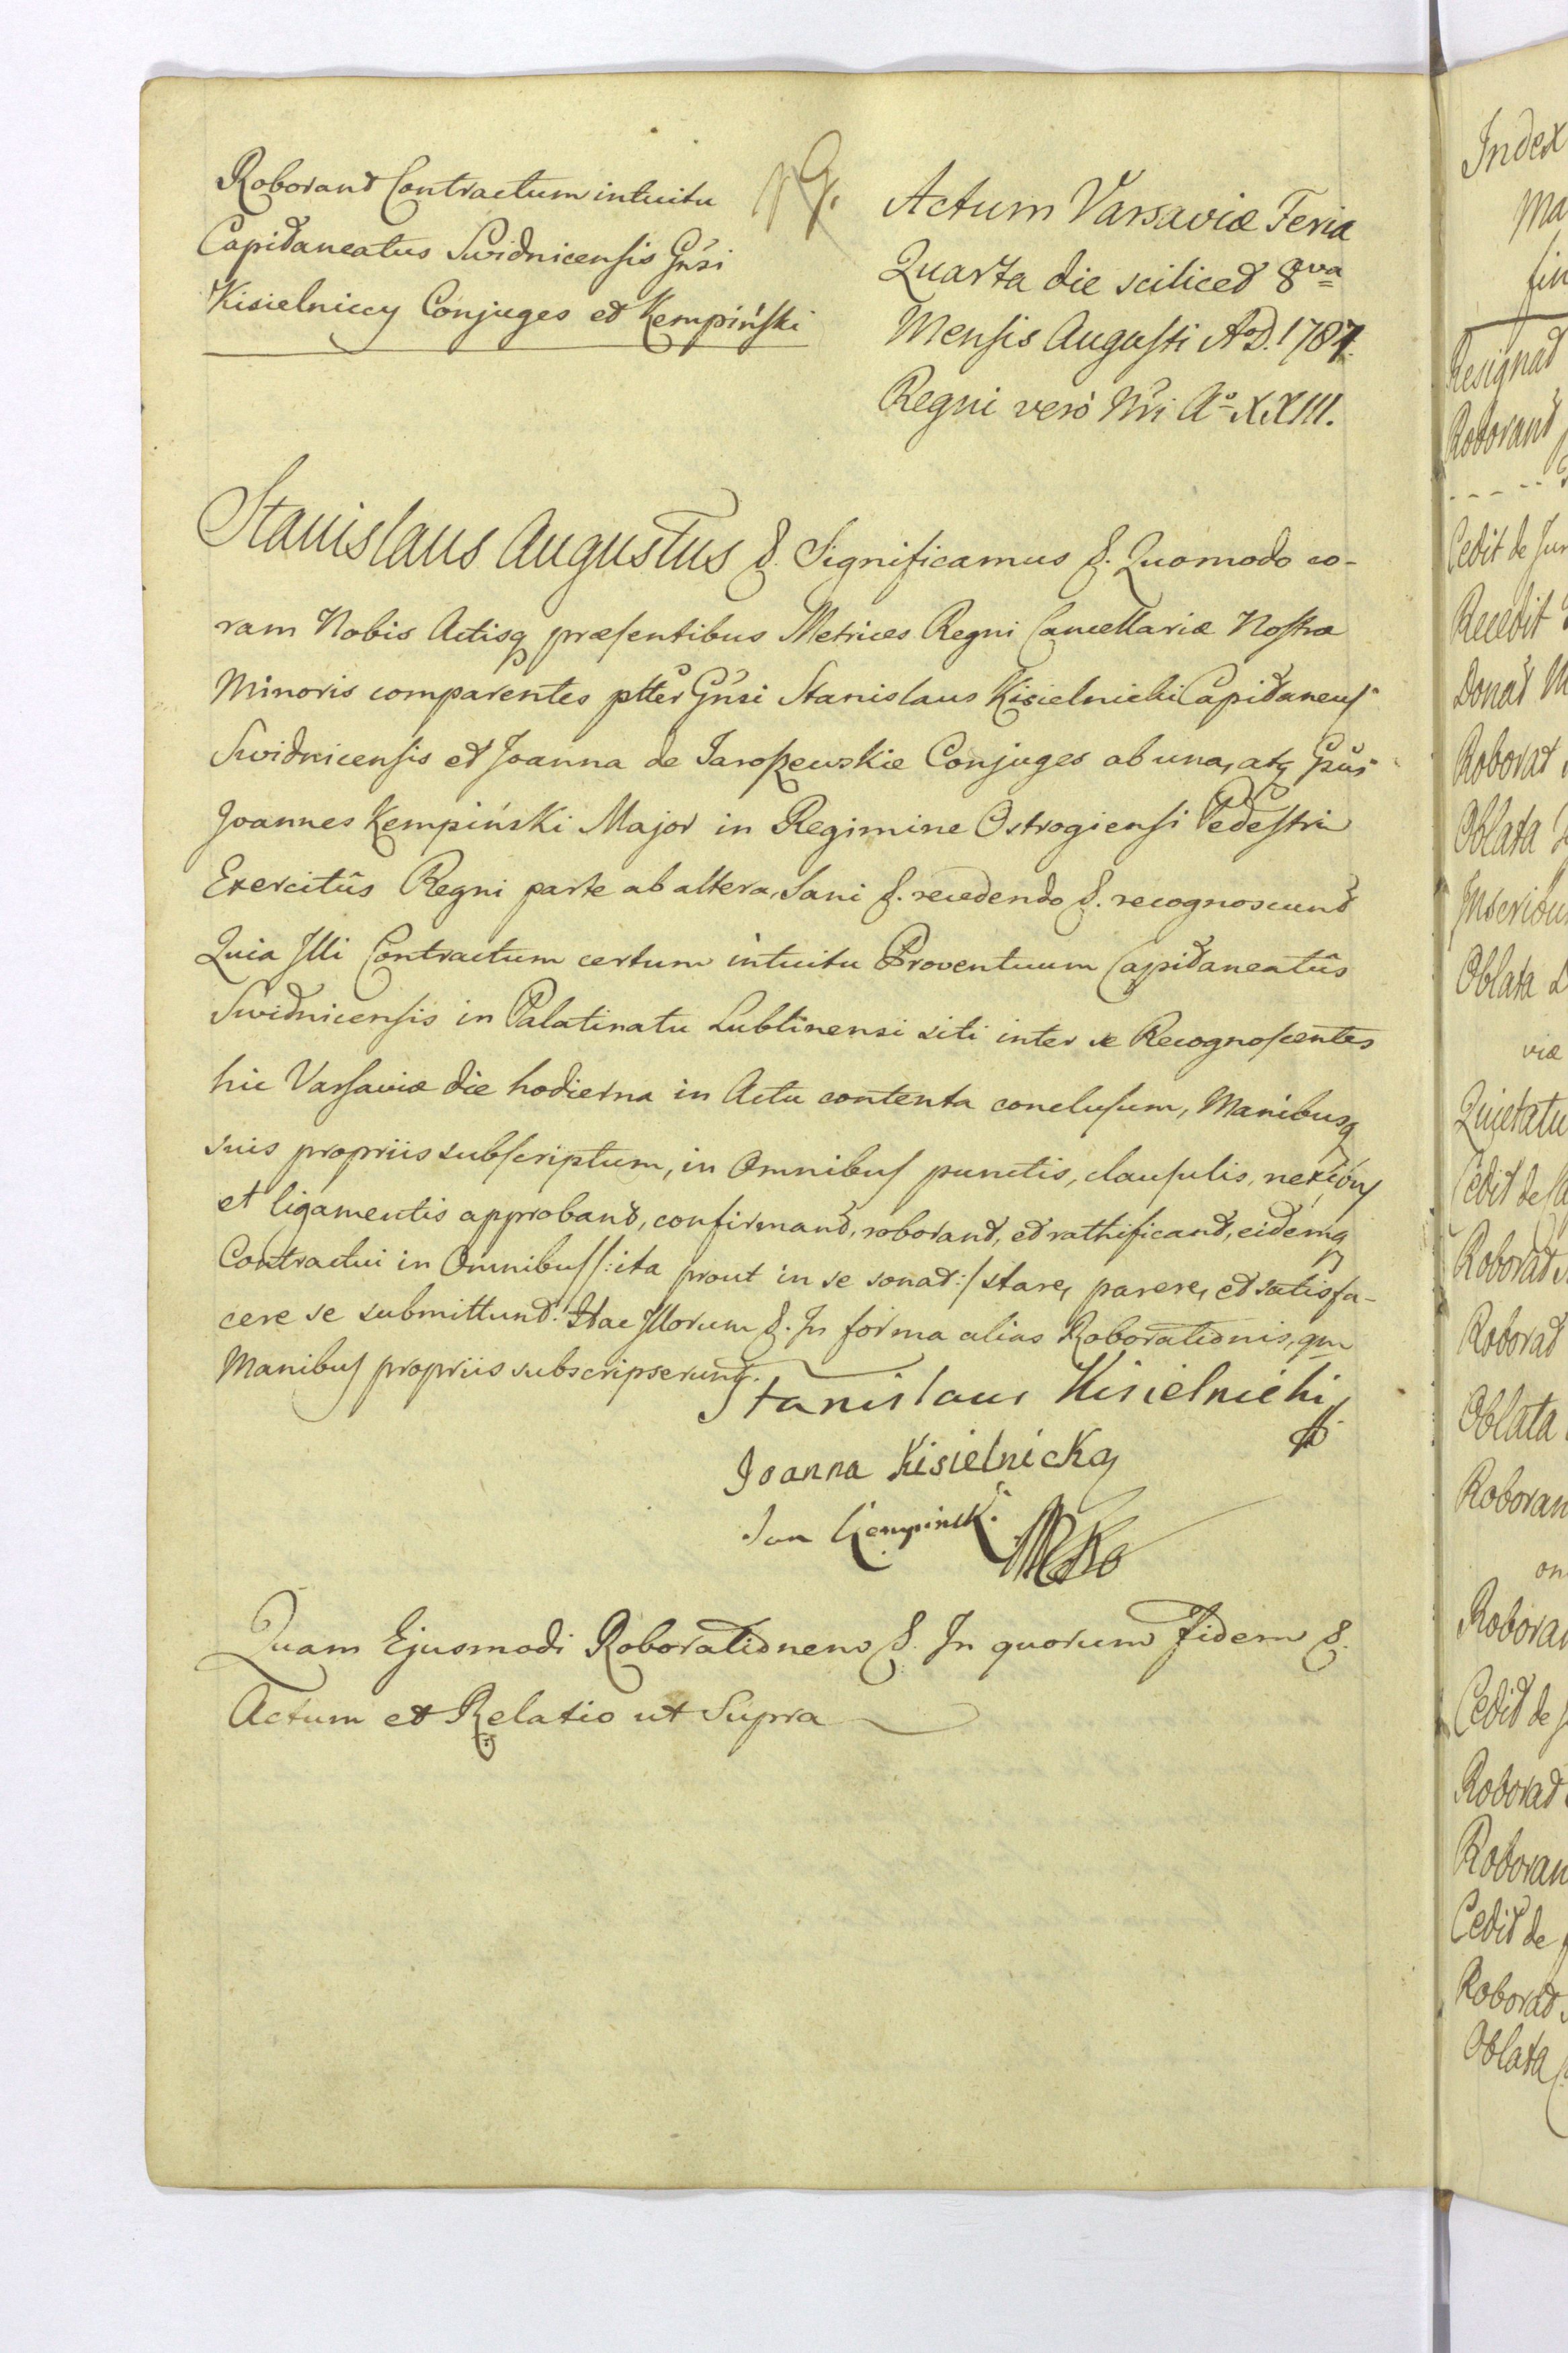 Roborant Contractum intuitu
Capitaneatus Swidnicensis Gn̄si
Kisielniccy Conjuges et Kempiński
Actum Varsaviæ Feria
Quarta die scilicet 8va
Mensis Augusti A.D. 1787.
Regni verò Nri Ao XXIII.
Stanislaus Augustus &. Significamus &. Quomodo co-
ram Nobis Actisq præsentibus Metrices Regni Cancellariæ Nostræ
Minoris comparentes ptter Gn̄si Stanislaus Kisielnicki Capitaneus
Swidnicensis et Joanna de Jaroszewskie Conjuges ab una, atq Gn̄sus
Joannes Kempiński Major in Regimine Ostrogiensi Pedestri
Exercitûs Regni parte ab altera, Sani &. recedendo &. recognoscunt
Quia Illi Contractum certum intuitu Proventuum Capitaneatûs
Swidnicensis in Palatinatu Lublinensi siti inter se Recognoscentes
hic Varsaviæ die hodierna in Actu contenta conclusum, Manibusq
suis propriis subscriptum, in Omnibus punctis, clausulis, nexibus
et ligamentis approbant, confirmant, roborant, et rathificant, eidemq
Contractui in Omnibus /: ita prout in se sonat :/ stare, parere, et satisfa-
cere se submittunt. Hac Illorum &. In forma alias Roborationis, qm
Manibus propriis subscripserunt.
Stanislaus Kisielnicki
Joanna Kisielnicka
Jan Kempinski
Quam Ejusmodi Roborationem &. In quorum Fidem &.
Actum et Relatio ut Supra
Index
Ma
fin
Resignat
Roborant
Cedit de Jur
Recedit
Donat M
Roborat
Oblata
Inscribu
Oblata
viæ
Quietatu
Cedit de
Roborat
Roborat
Oblata
Roboran
on
Roboran
Cedit de
Roborat
Roboran
Cedit de
Roborat
Oblata